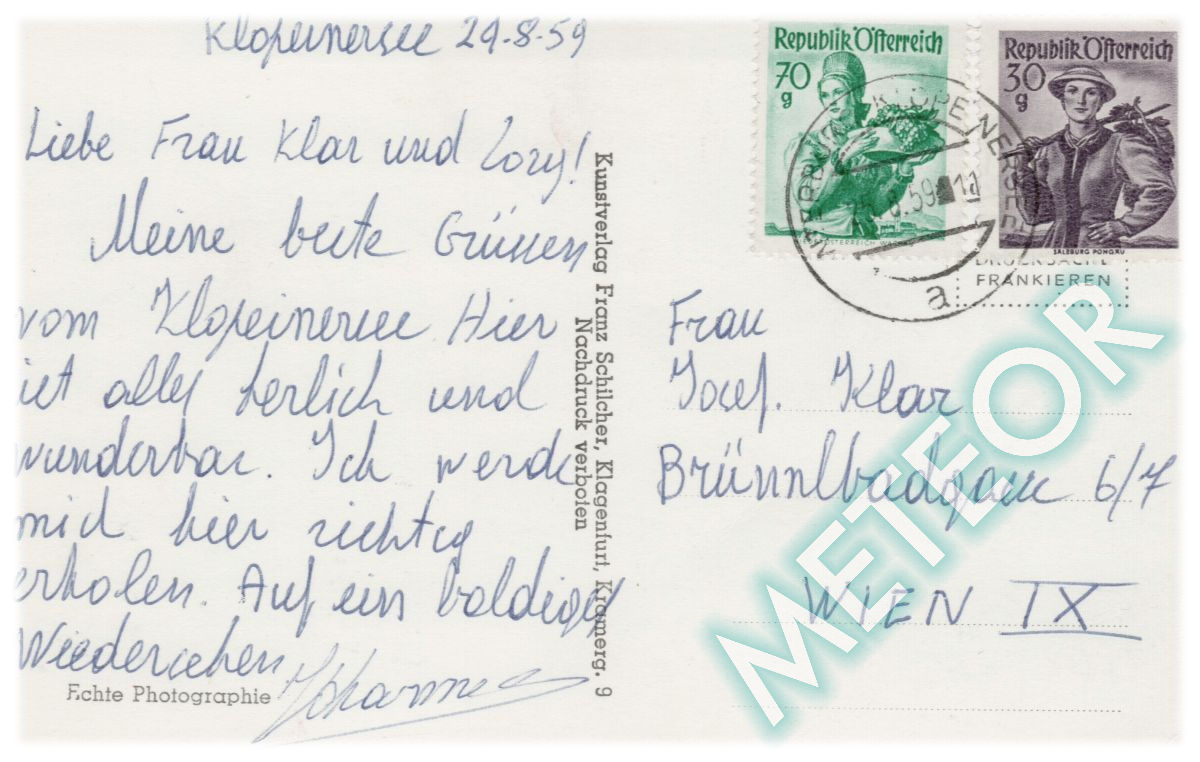 Klopeinersee 24-8-59
Liebe Frau Klar und Lory!
Meine beste Grüssen
vom Klopeinersee Hier
ist alles herlich und
wunderbar. Ich werde
mich hier richtig
erholen. Auf ein baldiges
Wiedersehen
Johannes
Echte Photographie
Kunstverlag Franz Schilcher, Klagenfurt, Kramerg. 9
Nachdruck verboten
Republik Österreich
70 g
Republik Österreich
30 g
SALZBURG PONGAU
KLOPEINERSEE
.59 11
a
DRUCKSACHE
FRANKIEREN
Frau
Josef. Klar
Brünnlbadgasse 6/7
WIEN IX
METEOR